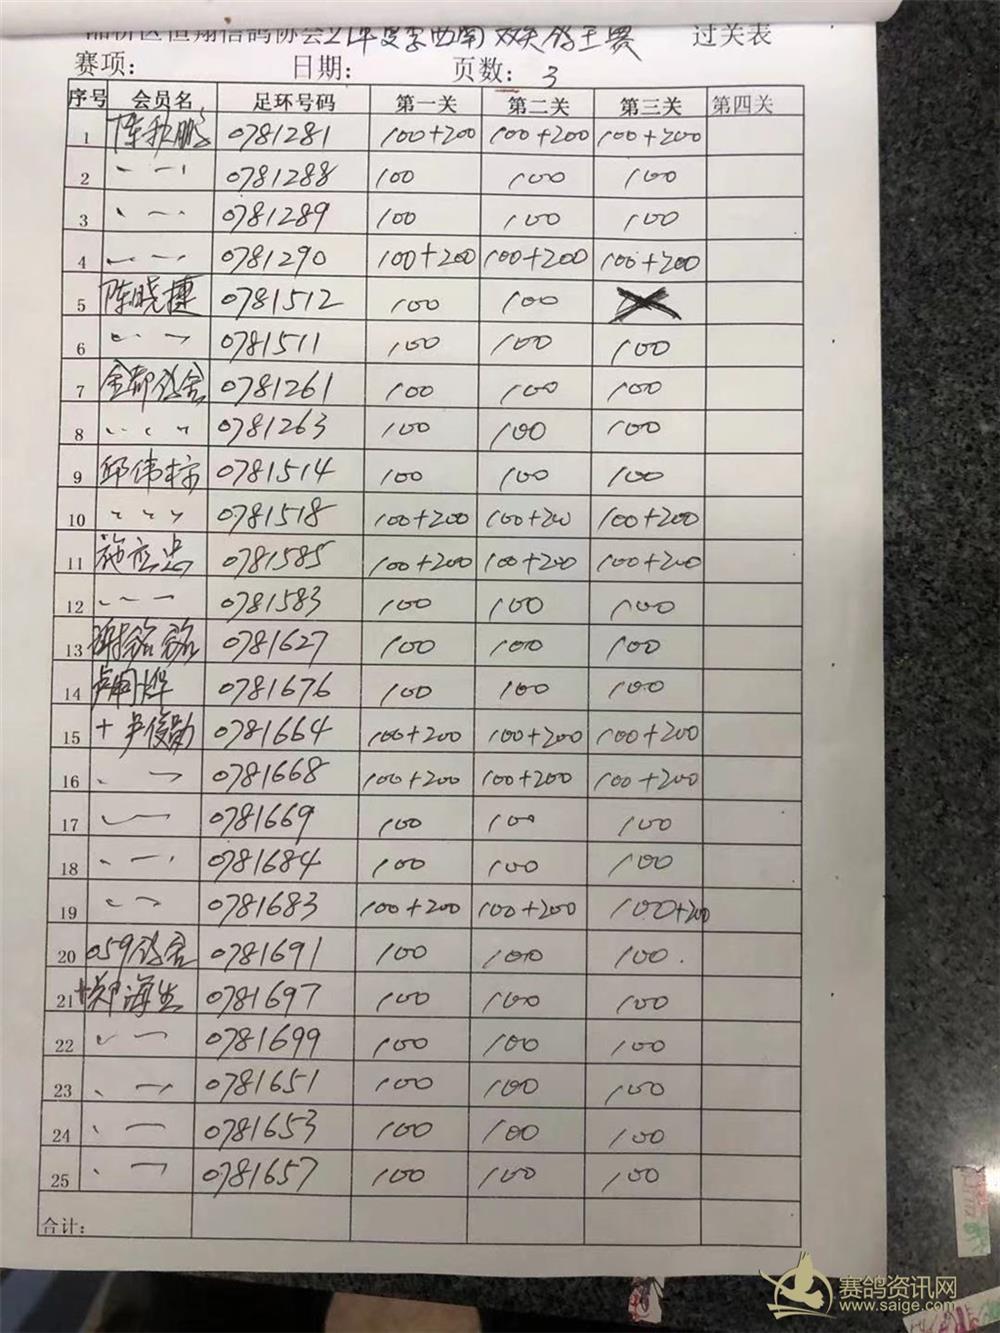 区恒翔信鸽协会21年 过关表
赛项： 日期： 页数：3
序号 会员名 足环号码 第一关 第二关 第三关 第四关
1 陈秋鹏 0781281 100+200 100+200 100+200
2 、 一 、 0781288 100 100 100
3 、 一 、 0781289 100 100 100
4 、 一 、 0781290 100+200 100+200 100+200
5 陈晓捷 0781512 100 100
6 、 、 、 0781511 100 100 100
7 金都鸽舍 0781261 100 100 100
8 、 、 、 、 0781263 100 100 100
9 邱伟 0781514 100 100 100
10 、 、 、 0781518 100+200 100+200 100+200
11 施应忠 0781585 100+200 100+200 100+200
12 、 、 一 0781583 100 100 100
13 0781627 100 100 100
14 0781676 100 100 100
15 + 尹俊勋 0781664 100+200 100+200 100+200
16 、 一 0781668 100+200 100+200 100+200
17 、 一 0781669 100 100 100
18 、 一 、 0781684 100 100 100
19 、 一 0781683 100+200 100+200 100+200
20 059鸽舍 0781691 100 100 100.
21 +郑海生 0781697 100 100 100
22 、 一 0781699 100 100 100
23 、 一 0781651 100 100 100
24 、 一 0781653 100 100 100
25 、 一 0781657 100 100 100
合计：
赛鸽资讯网
www.saige.com